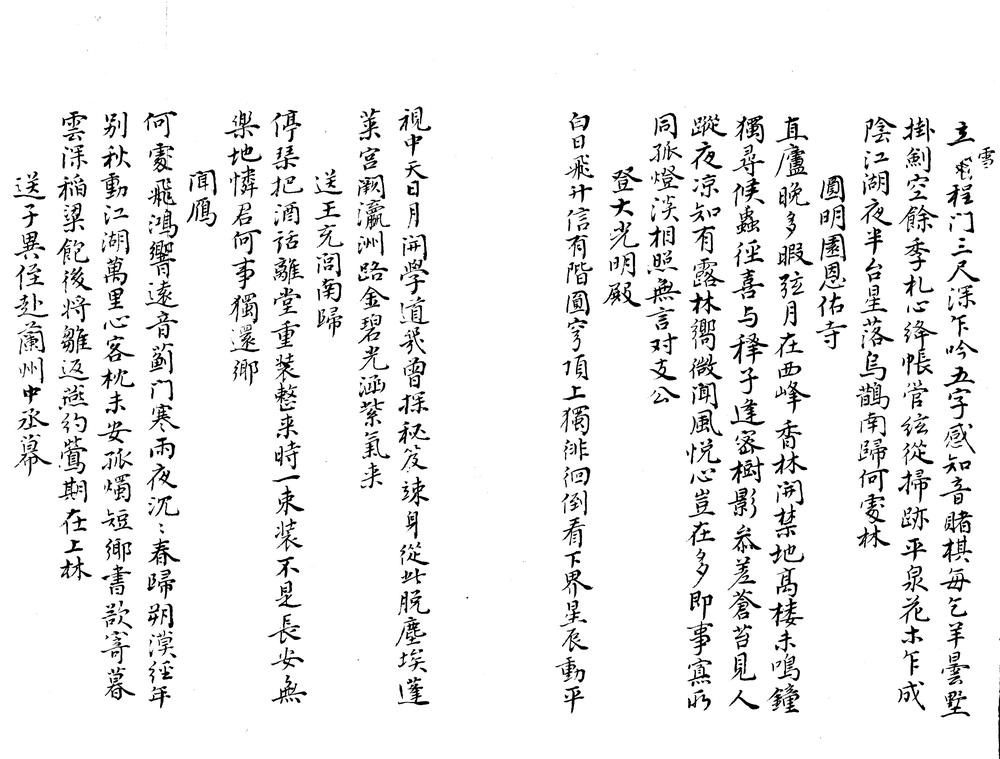 立雪程门三尺深乍吟五字感知音賭棋每乞羊曇墅
掛劍空餘季札心絳帳管絃從掃跡平泉花木乍成
陰江湖夜半台星落烏鵲南歸何處林
圓明園恩佑寺
直廬晚多暇弦月在西峰香林開禁地高楼未鳴鐘
獨尋候蟲徑喜与釋子逢密樹影参差蒼苔見人
蹤夜凉知有露林嚮微聞風悦心豈在多即事寡所
同孤燈淡相照無言对支公
登大光明殿
白日飛升信有階圓穹頂上獨徘徊倒看下界星辰動平
視中天日月開學道我曾探秘笈竦身從此脱塵埃蓬
莱宫阙瀛洲路金碧光涵紫氣来
送王充闾南歸
停琹把酒話離堂重装整来時一束装不是長安無
樂地憐君何事獨還鄉
聞鴈
何處飛鴻響遠音薊门寒雨夜沉〻春歸朔漠經年
别秋動江湖萬里心客枕未安孤燭短鄉書欲寄暮
雲深稻粱飽後将雛返燕约鶯期在上林
送子異侄赴蘭州中丞幕